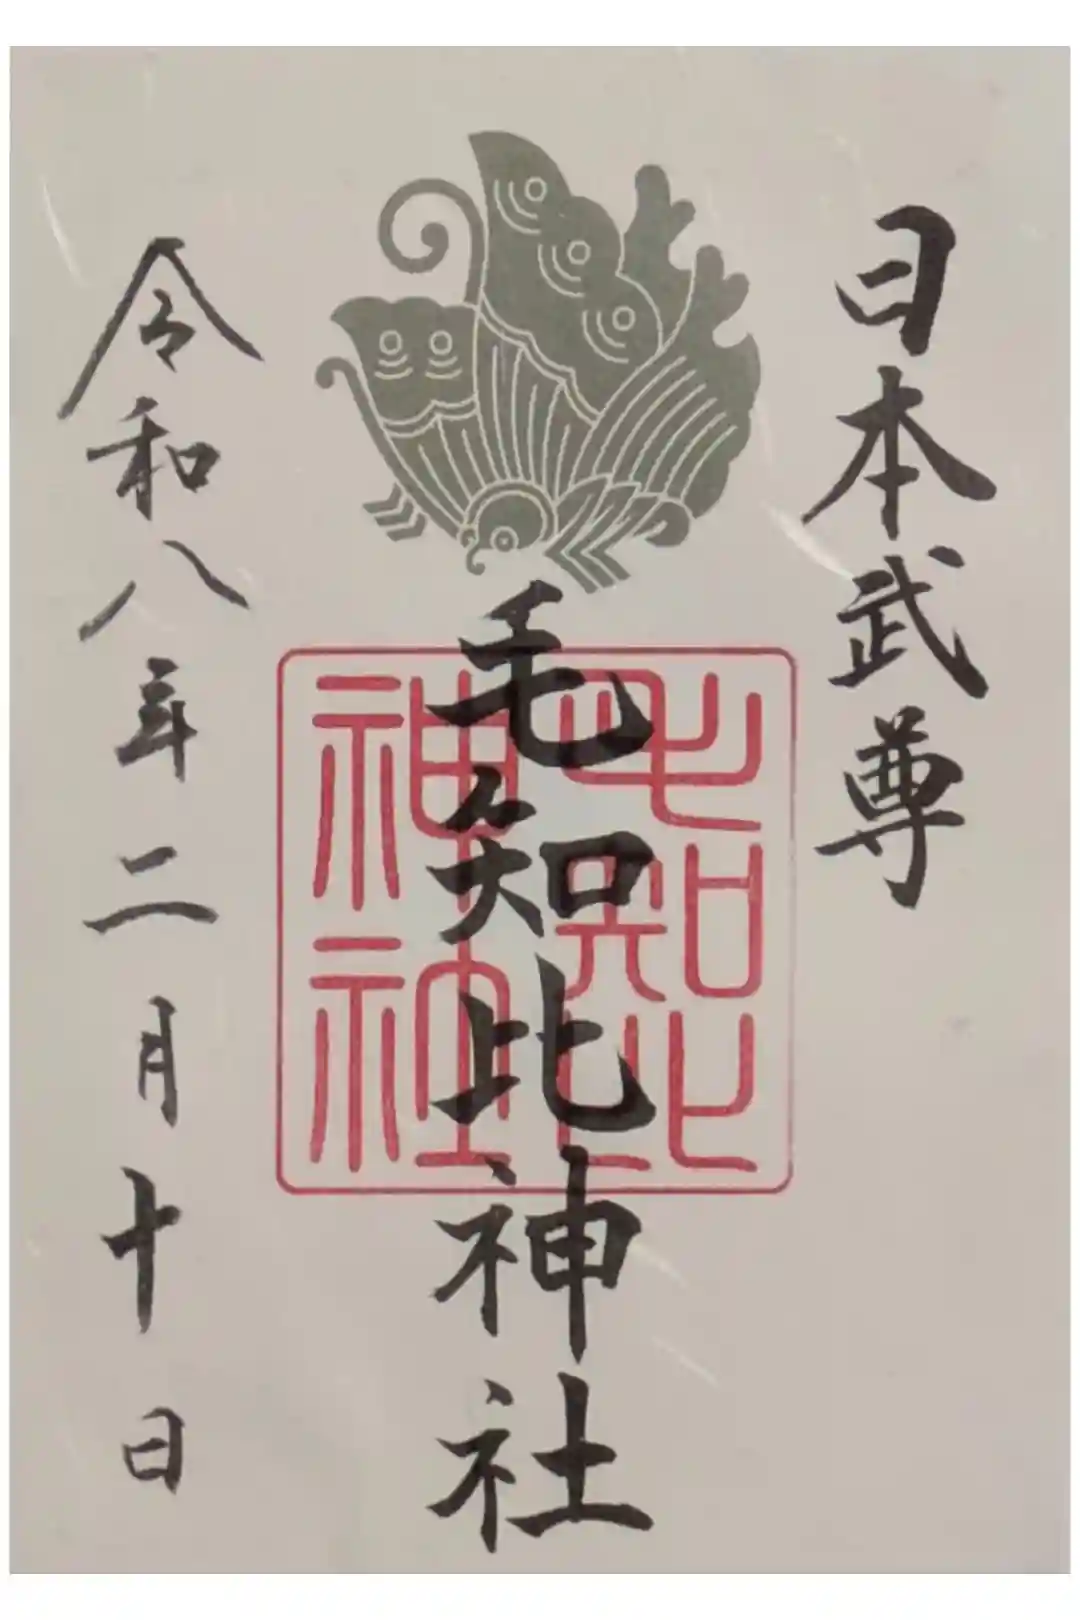 日本武尊
毛知比神社
毛知比
神社
令和八年二月十日